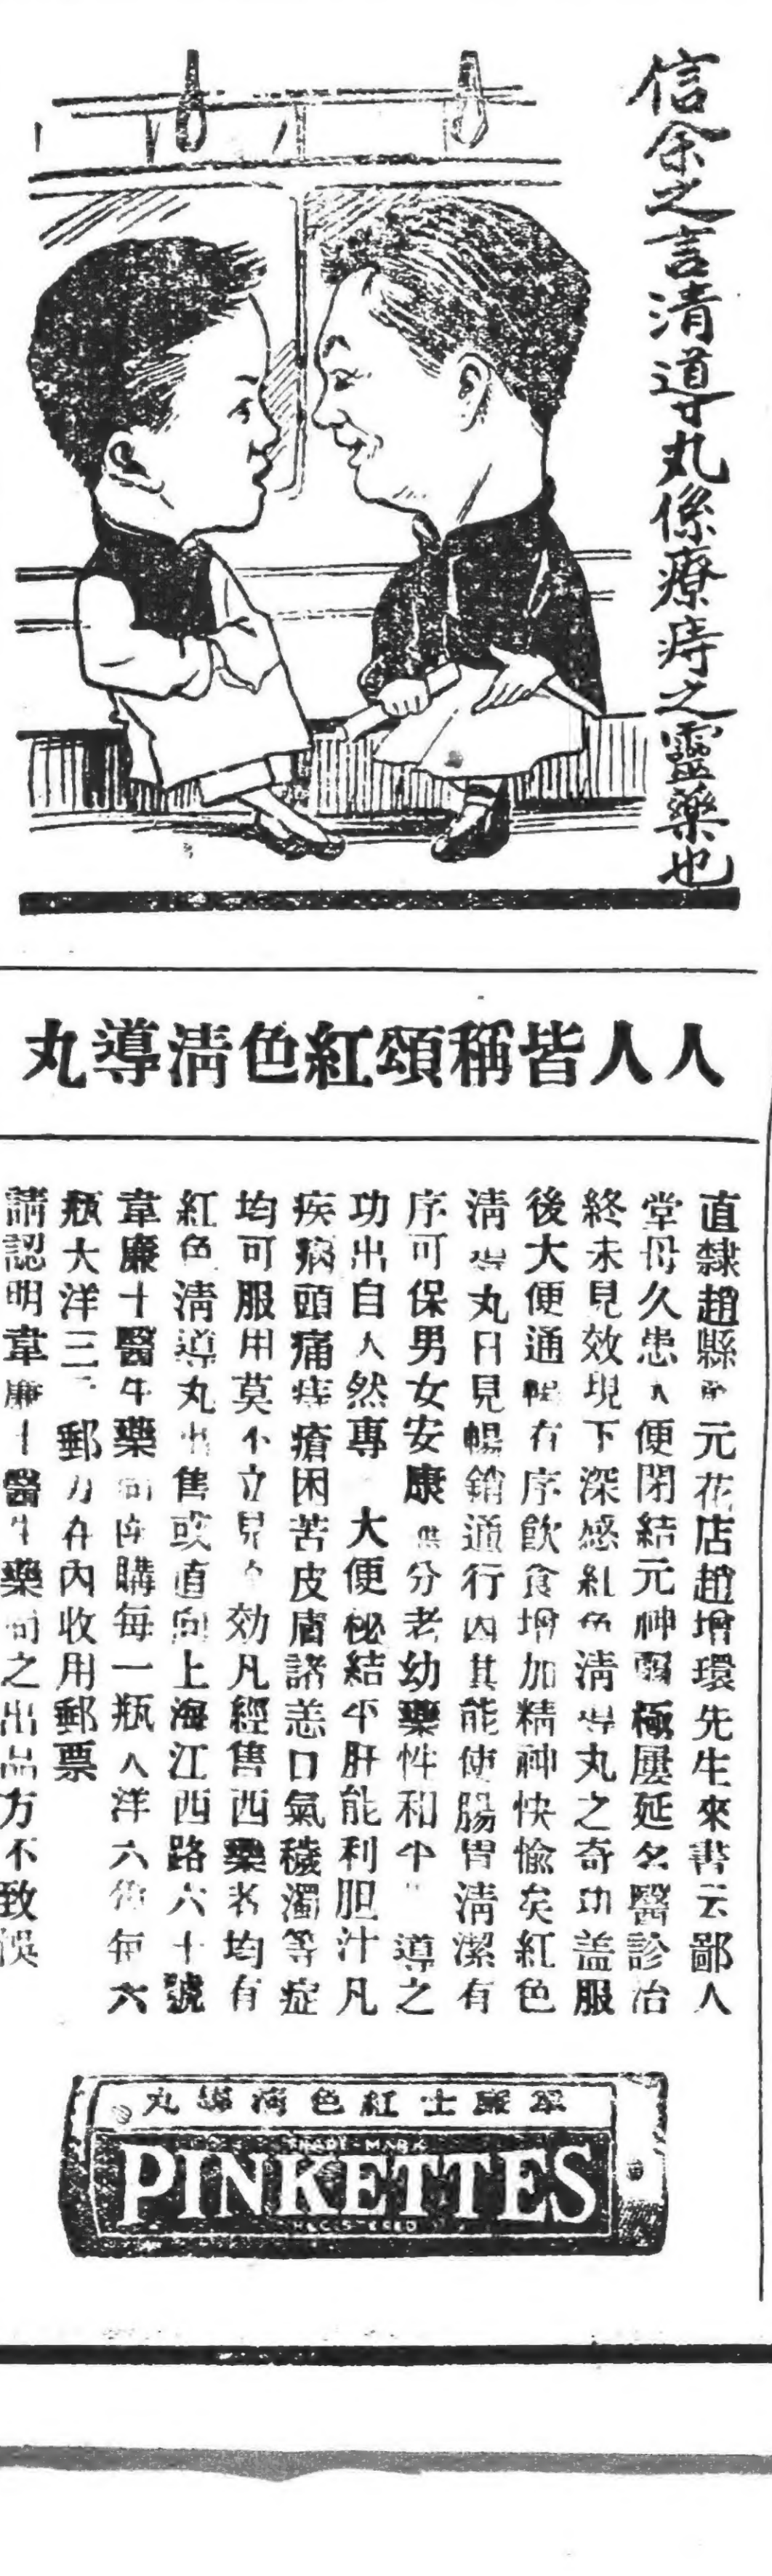 信余之言清導丸係療痔之靈藥也
人人皆稱頌紅色清導丸
直隸趙縣元花店趙增環先生來書云鄙人
堂母久患便閉結元神弱極屢延名醫診治
終未見效現下深感紅色清導丸之奇功蓋服
後大便通暢有序飲食增加精神快愉矣紅色
清導丸日見暢銷通行因其能使腸胃清潔有
序可保男女安康分老幼藥性和平導之
功出自人然專大便秘結平肝能利胆汁凡
疾病頭痛痔瘡困苦皮膚諸恙口氣穢濁等症
均可服用莫不立見効凡經售西藥者均有
紅色清導丸出售或直向上海江西路六十號
韋廉士醫生藥局函購每一瓶大洋六角每六
瓶大洋三郵力在內收用郵票
請認明韋廉士醫生藥局之出品方不致悞
韋廉士紅色清導丸
TRADE-MARK
PINKETTES